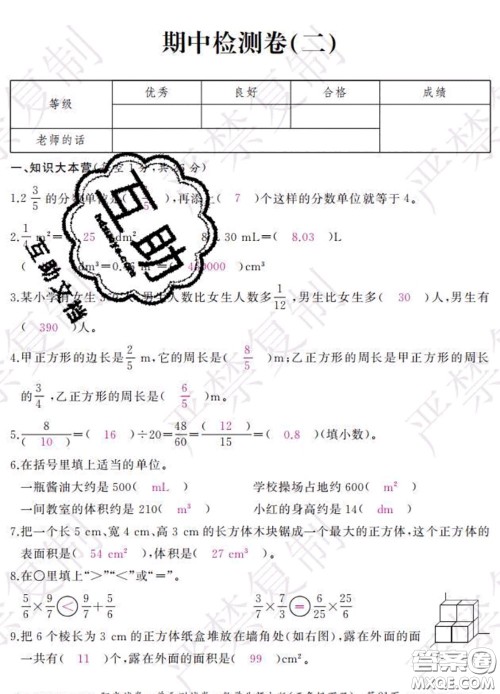 期中检测卷(二)
等级 优秀 良好 合格 成绩
老师的话
一、知识大本营
1.2 3/5 的分数单位是( /5 ),再添上( 7 )个这样的分数单位就等于4。
2. 1/4 m²=( 25 )dm² 30 mL=( 8.03 )L
dm³=0. m³=( 0000 )cm³
3.某小学有女生 人,男生人数比女生人数多1/12,男生比女生多( 30 )人,男生有
( 390 )人。
4.甲正方形的边长是2/5 m,它的周长是( 8/5 )m;乙正方形的周长是甲正方形周长
的3/4,乙正方形的周长是( 6/5 )m。
5. 8/( 10 )=( 16 )÷20=48/60=( 12 )/15=( 0.8 )(填小数)。
6.在括号里填上适当的单位。
一瓶酱油大约是500( mL ) 学校操场占地约600( m² )
一间教室的体积约是210( m³ ) 小红的身高约是14( dm )
7.把一个长5 cm、宽4 cm、高3 cm的长方体木块锯成一个最大的正方体,这个正方体的
表面积是( 54 cm² ),体积是( 27 cm³ )。
8.在○里填上“>”“<”或“=”。
5/6×9/5<9/5+5/6 7/30÷6/25=7/30×25/6
9.把6个棱长为3 cm的正方体纸盒堆放在墙角处(如右图),露在外面的面
一共有( 11 )个,露在外面的面积是( 99 )cm²。
互助
互助文档
严禁复制
答案圈
MXQE.COM